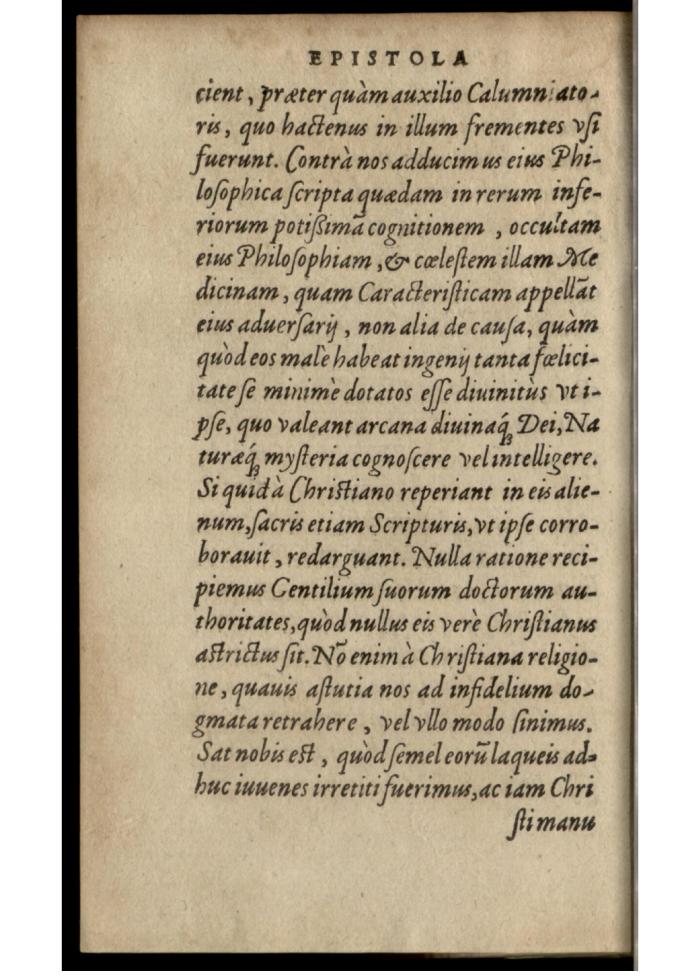 EPISTOLA
cient, præter quàm auxilio Calumniato-
ris, quo hactenus in illum frementes vſi
fuerunt. Contrà nos adducimus eius Phi-
loſophica ſcripta quædam in rerum infe-
riorum potißimā cognitionem, occultam
eius Philoſophiam, & cœleſtem illam Me
dicinam, quam Caracteriſticam appellāt
eius aduerſarij, non alia de cauſa, quàm
quòd eos malè habeat ingenij tanta fœlici-
tate ſe minimè dotatos eſſe diuinitùs vt i-
pſe, quo valeant arcana diuinaq́ꝫ Dei, Na
turæq́ꝫ myſteria cognoſcere vel intelligere.
Si quid à Chriſtiano reperiant in eis alie-
num, ſacris etiam Scripturis, vt ipſe corro-
borauit, redarguant. Nulla ratione reci-
piemus Gentilium ſuorum doctorum au-
thoritates, quòd nullus eis verè Chriſtianus
aſtrictus ſit. Nō enim à Chriſtiana religio-
ne, quauis aſtutia nos ad infidelium do-
gmata retrahere, vel vllo modo ſinimus.
Sat nobis eſt, quòd ſemel eorū laqueis ad-
huc iuuenes irretiti fuerimus, ac iam Chri
ſti manu